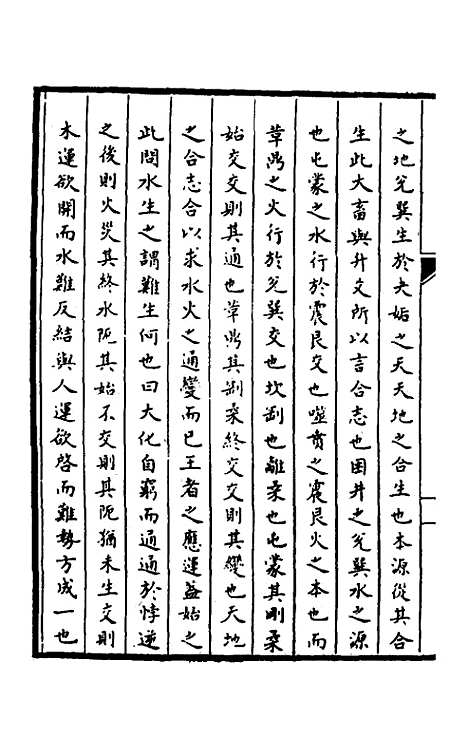 之地兌巽生於夬姤之天天地之合生也本源從其合
生此大畜與升爻所以言合志也困井之兌巽水之源
也屯蒙之水行於震艮交也噬賁之震艮火之本也而
革鼎之火行於兌巽交也坎剛也離柔也屯蒙其剛柔
始交交則其通也革鼎其剛柔終交交則其變也天地
之合志合以求水火之通變而已王者之應運蓋始之
此問水生之謂難生何也曰大化自窮而通通於悖逆
之後則火災其終水阨其始不交則其阨猶未生交則
木運欲開而水難反結與人運欲啓而難勢方成一也